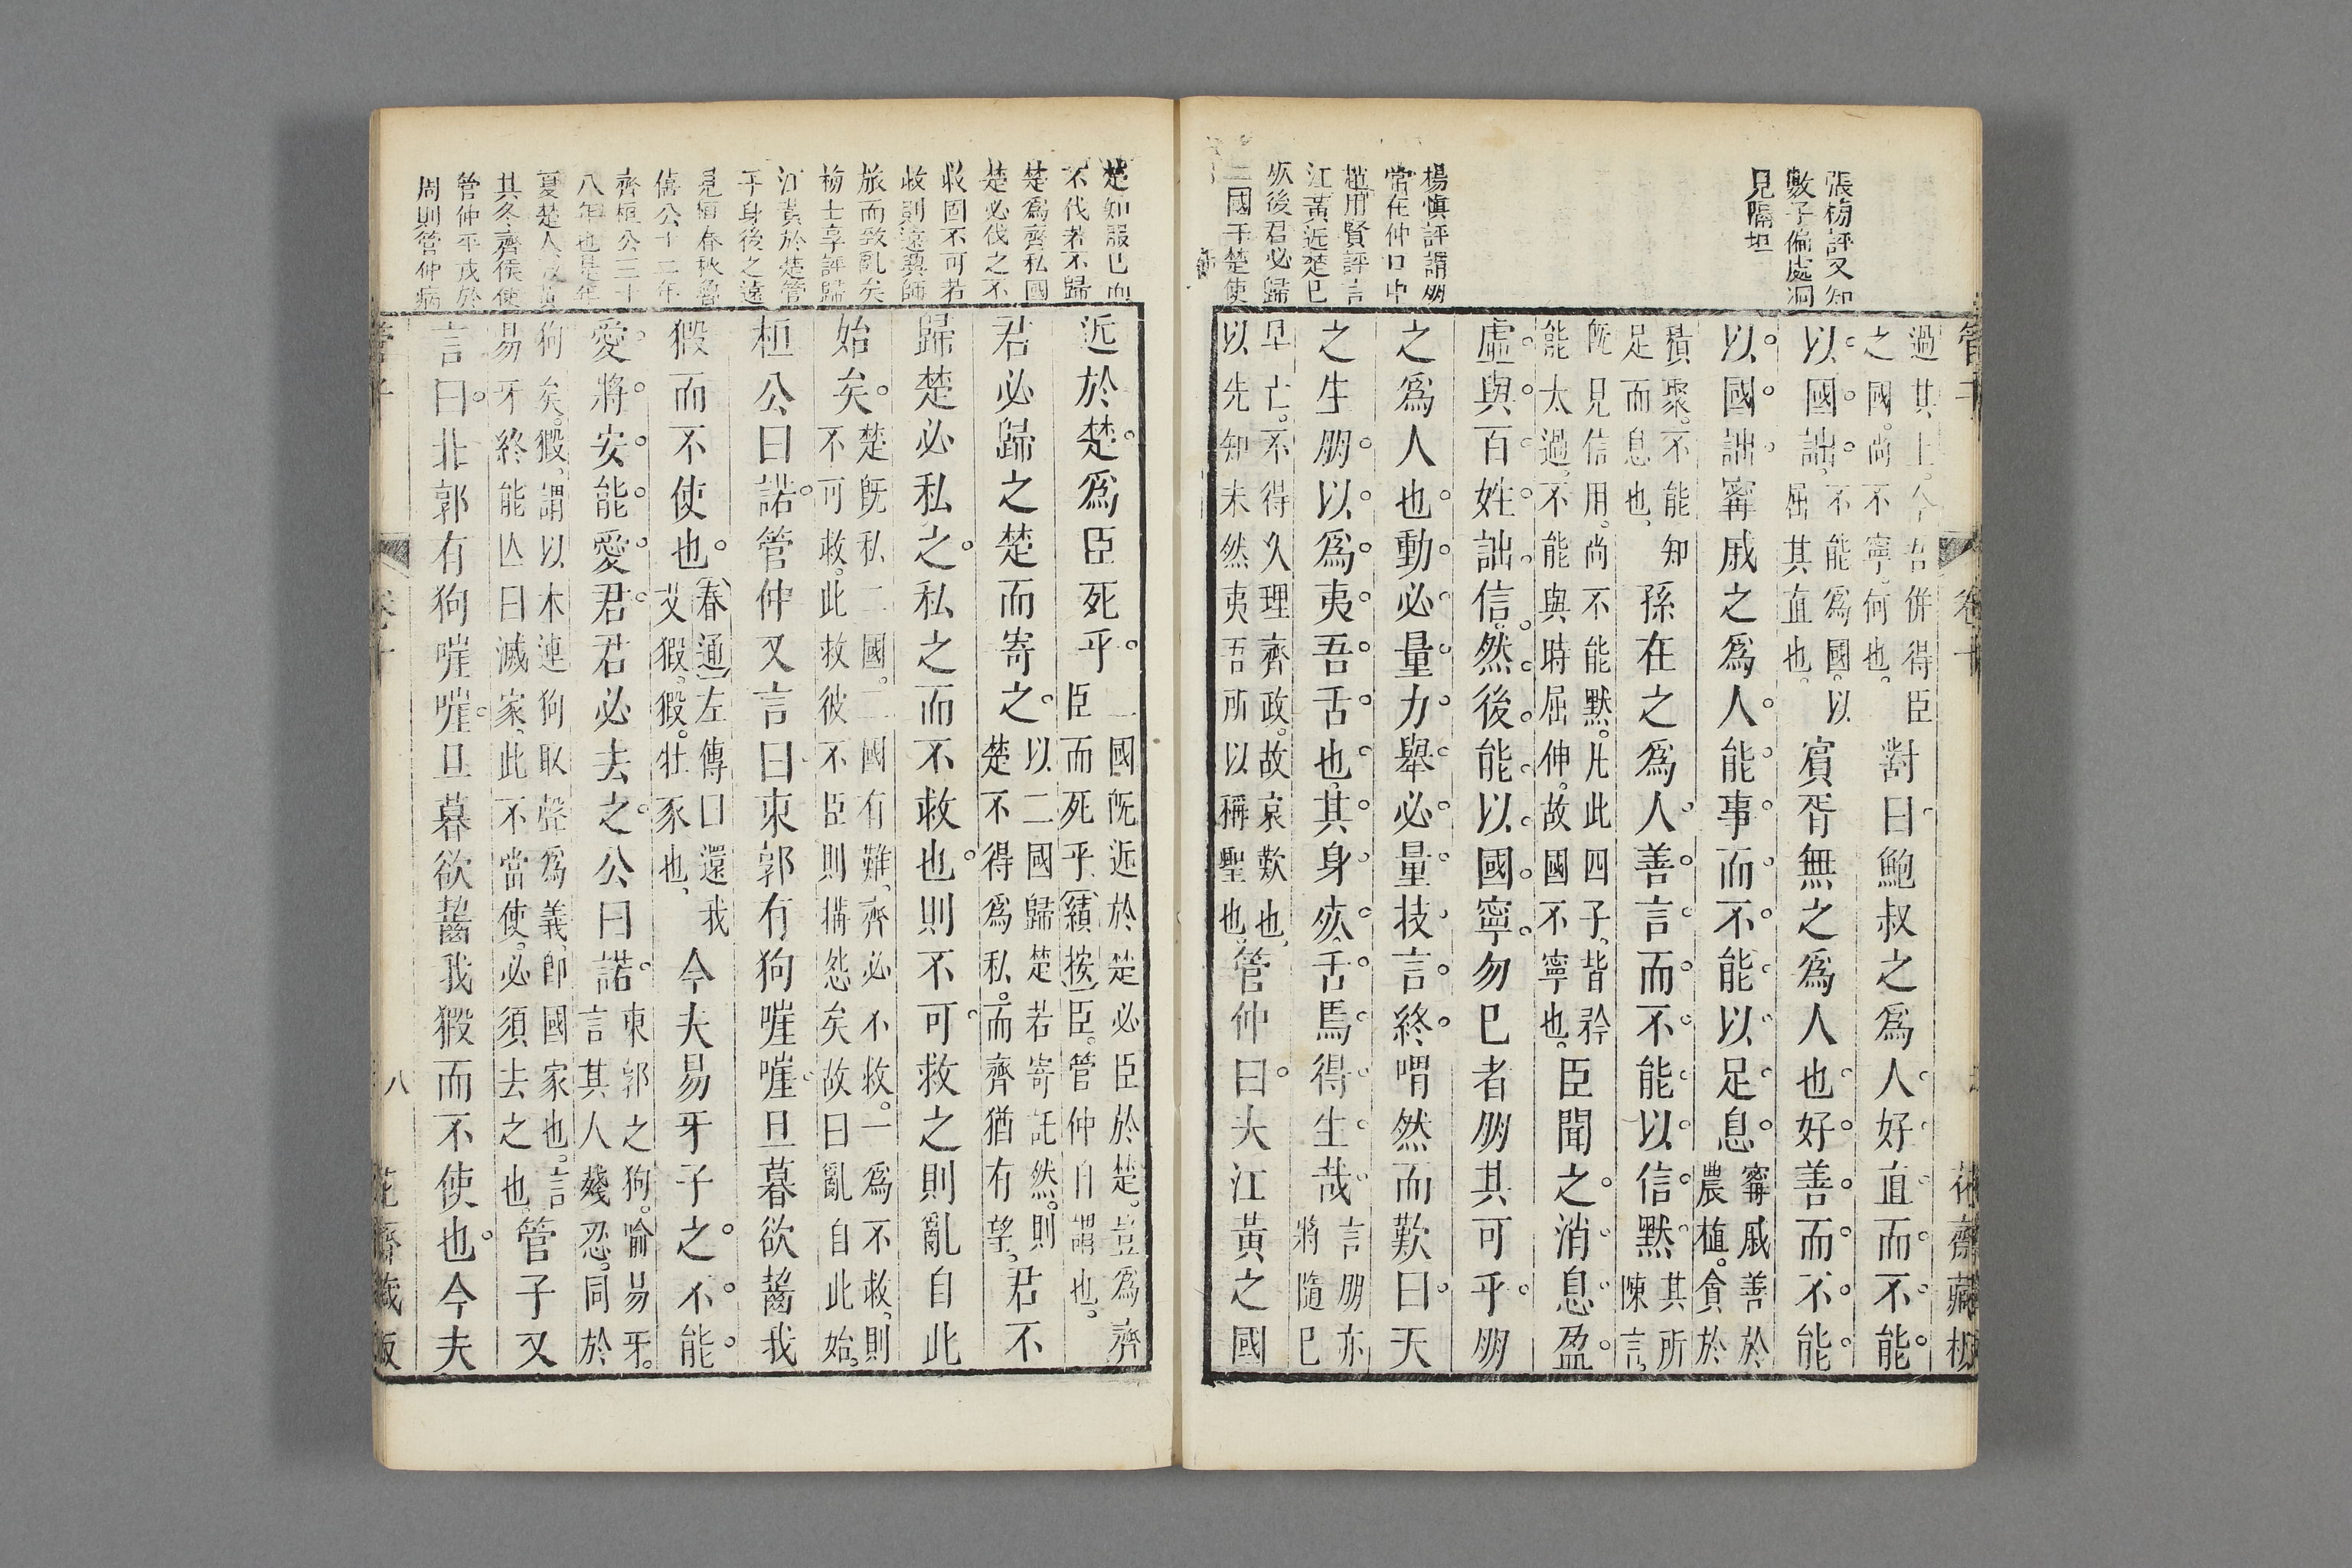 管子　卷十　花齋藏板
張榜評又知
數子偏處洞
見隔垣
楊慎評謂朋
常在仲口中
趙用賢評言
江黃近楚已
歿後君必歸
二國于楚使
過其上。今吾併得臣
之國。尚不寧。何也。
對曰鮑叔之爲人好直而不能
以國詘
不能爲國。以
屈其直也。
賓胥無之爲人也好善而不能
以國詘甯戚之爲人能事而不能以足息
甯戚善於
農植。貪於
積聚。不能知
足而息也。
孫在之爲人善言而不能以信默
其所
陳言。
旣見信用。尚不能默。凡此四子。皆矜
能太過。不能與時屈伸。故國不寧也。
臣聞之消息盈
虛與百姓詘信然後能以國寧勿已者朋其可乎朋
之爲人也動必量力舉必量技言終喟然而歎曰天
之生朋以爲夷吾舌也其身歾舌焉得生哉
言朋亦
將隨已
早亡。不得久理齊政。故哀歎也。
以先知未然夷吾所以稱聖也。
管仲曰夫江黃之國
楚知服已而
不伐若不歸
楚爲齊私國
楚必伐之不
救固不可若
救則遠興師
旅而致亂矣
楊士享評歸
江黃於楚管
子身後之遠
見值春秋魯
僖公十二年
齊桓公三十
八年也是年
夏楚人滅黃
其冬齊侯使
管仲平戎於
周則管仲病
近於楚。爲臣死乎。
二國旣近於楚必臣於楚。豈爲齊
臣而死乎(績按)臣。管仲自謂也。
君必歸之楚而寄之。
以二國歸楚若寄託然。則
楚不得爲私。而齊猶有望。
君不
歸楚必私之。私之而不救也。則不可。救之則亂自此
始矣。
楚旣私二國。二國有難。齊必不救。一爲不救。則
不可救。此救彼不臣則搆怨矣故曰亂自此始。
桓公曰諾。管仲又言曰東郭有狗嘊嘊。旦暮欲齧我
猳而不使也。
(春通)左傳曰還我
艾猳。猳。牡豕也。
今夫易牙子之。不能。
愛。將安能愛君。君必去之。公曰諾。
東郭之狗。喻易牙。
言其人殘忍。同於
狗矣。猳。謂以木連狗取聲爲義。卽國家也。言
易牙終能亾日滅家。此不當使。必須去之也。
管子又
言曰。北郭有狗嘊嘊。旦暮欲齧我猳而不使也。今夫
管子　卷十　八　花齋藏板